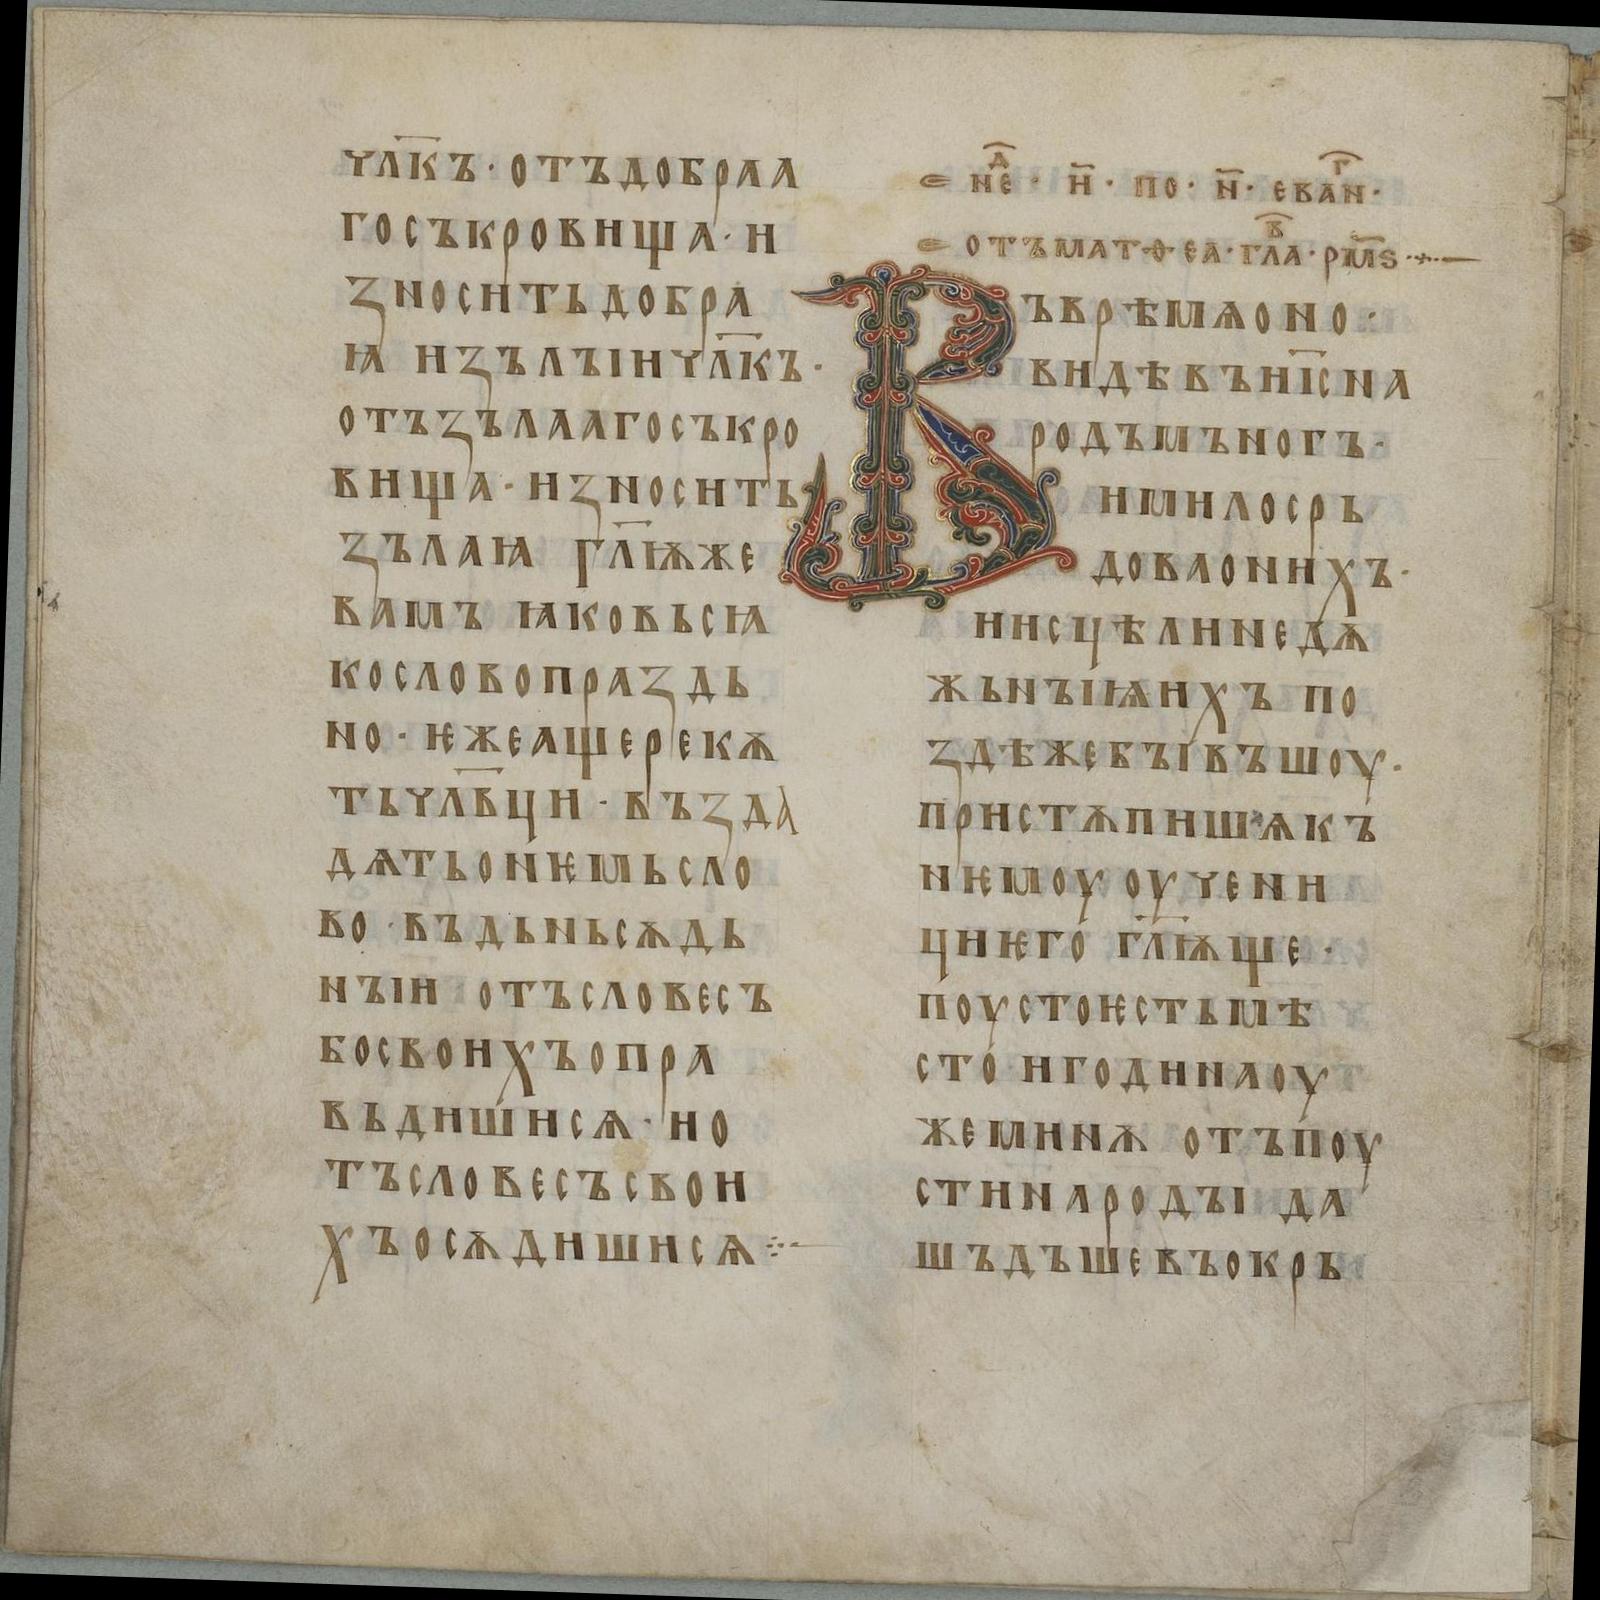 чл҃къ · отъдобраа
госъкровища · и
зноситьдобра
ꙗ изълꙑичл҃къ ·
отъзълаагосъкро
вища · износить
зълаꙗ гл҃ѭже
вамъ ꙗковьсꙗ
кословопраздь
но · ѥжеащерекѫ
тьчл҃вци · възда
дѧтьонѥмьсло
во · въдьньсѫдь
нꙑи отъсловесъ
босвоихъопра
вьдишисѧ · ио
тъсловесъсвои
хъосѫдишисѧ
не҃д · н҃ · по · н҃ · еваг҃н ·
отъматѳеа · гл҃ва · рм҃ѕ
Въврѣмѧоно ·
видѣвъиі҃сна
родъмъногъ ·
имилосрь
довао нихъ ·
иисцѣлинедѫ
жьнꙑѩихъ по
здѣжебꙑвъшоу ·
пристѫпишѧкъ
нѥмоу оучени
циѥго гл҃ѭще ·
поустоѥстьмѣ
сто игодинаоу
жеминѫ отъпоу
стинародꙑ да
шъдъшевъокрь